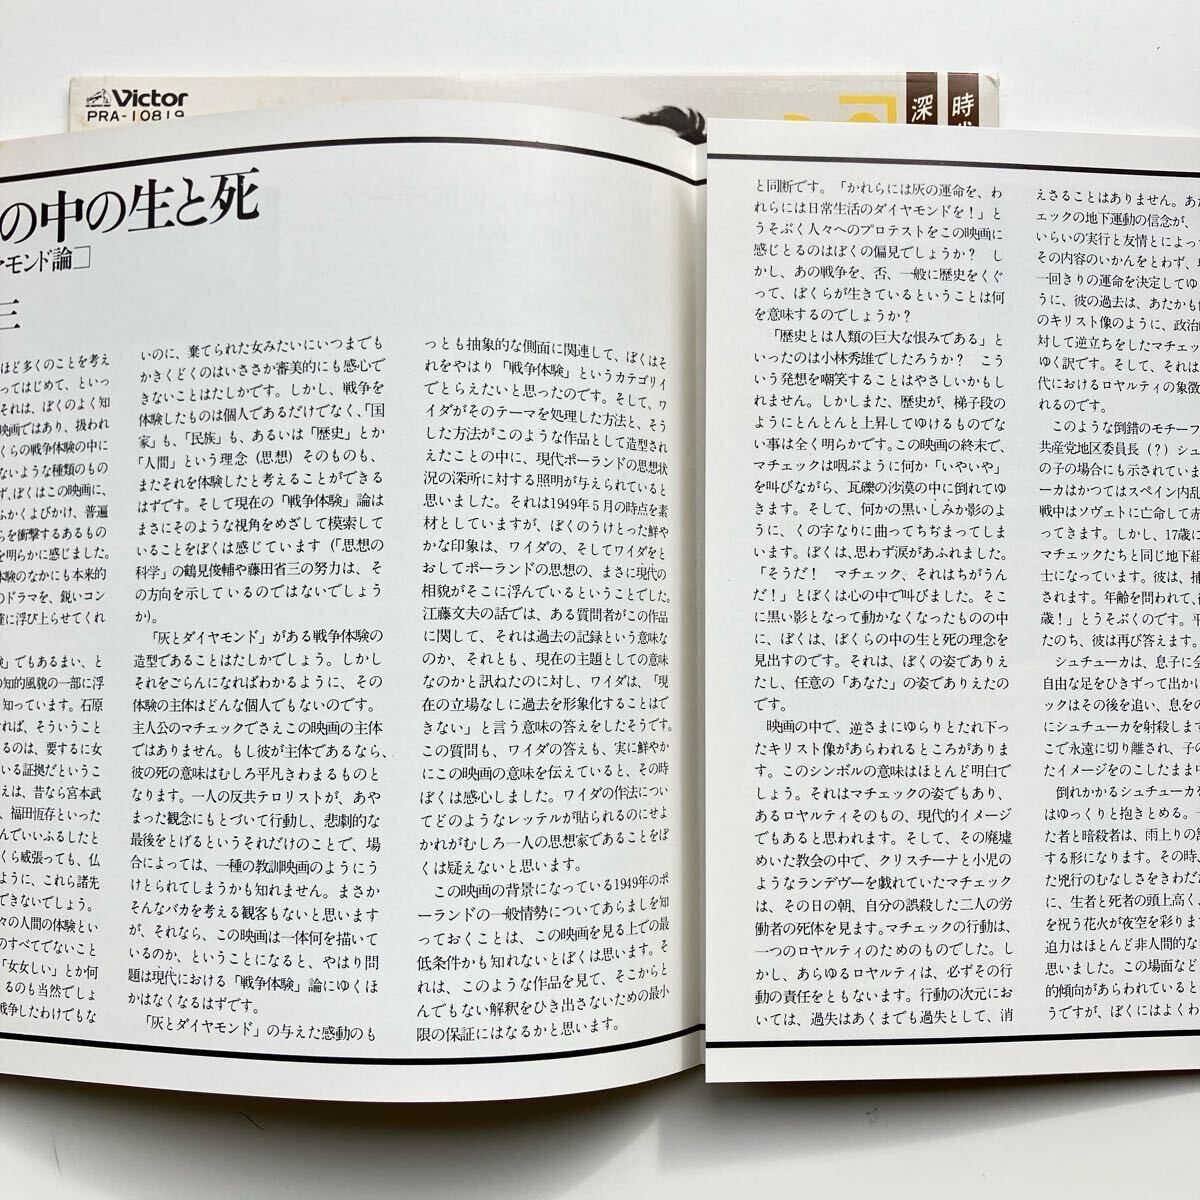 Victor
PRA-10819
時
深
の中の生と死
モンド論]
三
ほど多くのことを考え
ってはじめて、といっ
それは、ぼくのよく知
映画ではあり、扱われ
くらの戦争体験の中に
ないような種類のもの
ず、ぼくはこの映画に、
ふかくよびかけ、普遍
らを衝撃するあるもの
を明らかに感じました。
体験のなかにも本来的
のドラマを、鋭いコン
に浮び上らせてくれ
」でもあるまい、と
の知的風貌の一部に浮
知っています。石原
れば、そういうこと
るのは、要するに女
いる証拠だというこ
えば、昔なら宮本武
、福田恆存といった
んでいいふるしたと
くら威張っても、仏
ように、これら諸先
できないでしょう。
々の人間の体験とい
のすべてでないこと
「女女しい」とか何
るのも当然でしょ
戦争したわけでもな
いのに、棄てられた女みたいにいつまでも
かきくどくのはいささか審美的にも感心で
きないことはたしかです。しかし、戦争を
体験したものは個人であるだけでなく、「国
家」も、「民族」も、あるいは「歴史」とか
「人間」という理念(思想)そのものも、
またそれを体験したと考えることができる
はずです。そして現在の「戦争体験」論は
まさにそのような視角をめざして模索して
いることをぼくは感じています(「思想の
科学」の鶴見俊輔や藤田省三の努力は、そ
の方向を示しているのではないでしょう
か)。
「灰とダイヤモンド」がある戦争体験の
造型であることはたしかでしょう。しかし
それをごらんになればわかるように、その
体験の主体はどんな個人でもないのです。
主人公のマチェックでさえこの映画の主体
ではありません。もし彼が主体であるなら、
彼の死の意味はむしろ平凡きわまるものと
なります。一人の反共テロリストが、あや
まった観念にもとづいて行動し、悲劇的な
最後をとげるというそれだけのことで、場
合によっては、一種の教訓映画のようにう
けとられてしまうかも知れません。まさか
そんなバカを考える観客もないと思います
が、それなら、この映画は一体何を描いて
いるのか、ということになると、やはり問
題は現代における「戦争体験」論にゆくほ
かはなくなるはずです。
「灰とダイヤモンド」の与えた感動のも
っとも抽象的な側面に関連して、ぼくはそ
れをやはり「戦争体験」というカテゴリイ
でとらえたいと思ったのです。そして、ワ
イダがそのテーマを処理した方法と、そう
した方法がこのような作品として造型され
えたことの中に、現代ポーランドの思想状
況の深所に対する照明が与えられていると
思いました。それは1949年5月の時点を素
材としていますが、ぼくのうけとった鮮や
かな印象は、ワイダの、そしてワイダをと
おしてポーランドの思想の、まさに現代の
相貌がそこに浮んでいるということでした。
江藤文夫の話では、ある質問者がこの作品
に関して、それは過去の記録という意味な
のか、それとも、現在の主題としての意味
なのかと訊ねたのに対し、ワイダは、「現
在の立場なしに過去を形象化することはで
きない」と言う意味の答えをしたそうです。
この質問も、ワイダの答えも、実に鮮やか
にこの映画の意味を伝えていると、その時
ぼくは感心しました。ワイダの作法につい
てどのようなレッテルが貼られるのにせよ
かれがむしろ一人の思想家であることをぼ
くは疑えないと思います。
この映画の背景になっている1949年のポ
ーランドの一般情勢についてあらましを知
っておくことは、この映画を見る上での最
低条件かも知れないとぼくは思います。そ
れは、このような作品を見て、そこからと
んでもない解釈をひき出さないための最小
限の保証にはなるかと思います。
と同断です。「かれらには灰の運命を、わ
れらには日常生活のダイヤモンドを!」と
うそぶく人々へのプロテストをこの映画に
感じとるのはぼくの偏見でしょうか? し
かし、あの戦争を、否、一般に歴史をくぐ
って、ぼくらが生きているということは何
を意味するのでしょうか?
「歴史とは人類の巨大な恨みである」と
いったのは小林秀雄でしたろうか? こう
いう発想を嘲笑することはやさしいかもし
れません。しかしまた、歴史が、梯子段の
ようにとんとんと上昇してゆけるものでな
い事は全く明らかです。この映画の終末で、
マチェックは咽ぶように何か「いやいや」
を叫びながら、瓦礫の沙漠の中に倒れてゆ
きます。そして、何かの黒いしみか影のよ
うに、くの字なりに曲ってちぢまってしま
います。ぼくは、思わず涙があふれました。
「そうだ! マチェック、それはちがうん
だ!」とぼくは心の中で叫びました。そこ
に黒い影となって動かなくなったものの中
に、ぼくは、ぼくらの中の生と死の理念を
見出すのです。それは、ぼくの姿でありえ
たし、任意の「あなた」の姿でありえたの
です。
映画の中で、逆さまにゆらりとたれ下っ
たキリスト像があらわれるところがありま
す。このシンボルの意味はほとんど明白で
しょう。それはマチェックの姿でもあり、
あるロヤルティそのもの、現代的イメージ
でもあると思われます。そして、その廃墟
めいた教会の中で、クリスチーナと小児の
ようなランデヴーを戯れていたマチェック
は、その日の朝、自分の誤殺した二人の労
働者の死体を見ます。マチェックの行動は、
一つのロヤルティのためのものでした。し
かし、あらゆるロヤルティは、必ずその行
動の責任をともないます。行動の次元にお
いては、過失はあくまでも過失として、消
えさることはありません。あた
ェックの地下運動の信念が、
いらいの実行と友情とによっ
その内容のいかんをとわず、
一回きりの運命を決定してゆ
うに、彼の過去は、あたかも
のキリスト像のように、政治
対して逆立ちをしたマチェッ
ゆく訳です。そして、それは
代におけるロヤルティの象徴
れるのです。
このような倒錯のモチーフ
共産党地区委員長(?)シュ
の子の場合にも示されていま
ーカはかつてはスペイン内乱
戦中はソヴェトに亡命して赤
ってきます。しかし、17歳に
マチェックたちと同じ地下組
士になっています。彼は、捕
されます。年齢を問われて、
歳!」とうそぶくのです。平
たのち、彼は再び答えます。
シュチューカは、息子に会
自由な足をひきずって出か
ックはその後を追い、息を
にシュチューカを射殺しま
こで永遠に切り離され、子
たイメージをのこしたまま
倒れかかるシュチューカを
はゆっくりと抱きとめる。
た者と暗殺者は、雨上りの
する形になります。その時、
た兇行のむなしさをきわだ
に、生者と死者の頭上高く、
を祝う花火が夜空を彩りま
迫力はほとんど非人間的な
思いました。この場面など
的傾向があらわれていると
うですが、ぼくにはよくわ